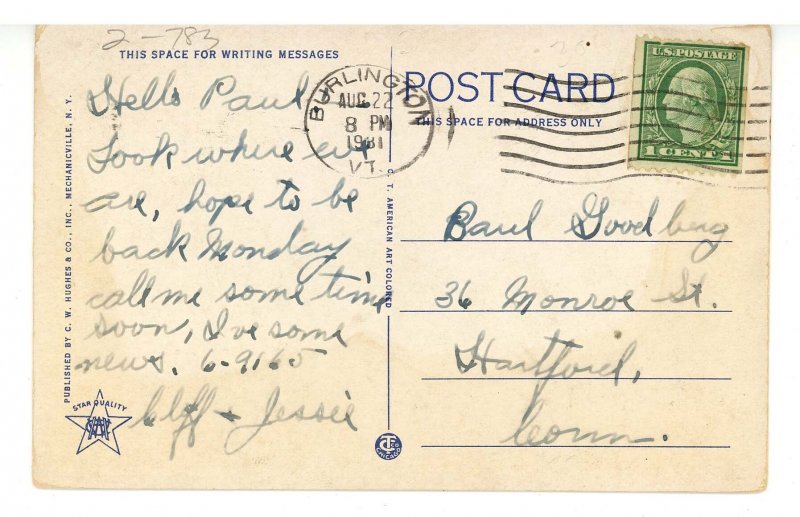 2-783
THIS SPACE FOR WRITING MESSAGES
Hello Paul
Look where we
are, hope to be
back Monday
call me some time
soon, I've some
news. 6-9165
Cliff + Jessie
PUBLISHED BY C. W. HUGHES & CO., INC., MECHANICVILLE, N. Y.
STAR QUALITY
C. T. AMERICAN ART COLORED
CHICAGO
BURLINGTON
AUG 22
8 PM
1931
VT.
POST CARD
THIS SPACE FOR ADDRESS ONLY
U.S. POSTAGE
1 CENT 1
Paul Goodberg
36 Monroe St.
Hartford,
Conn.